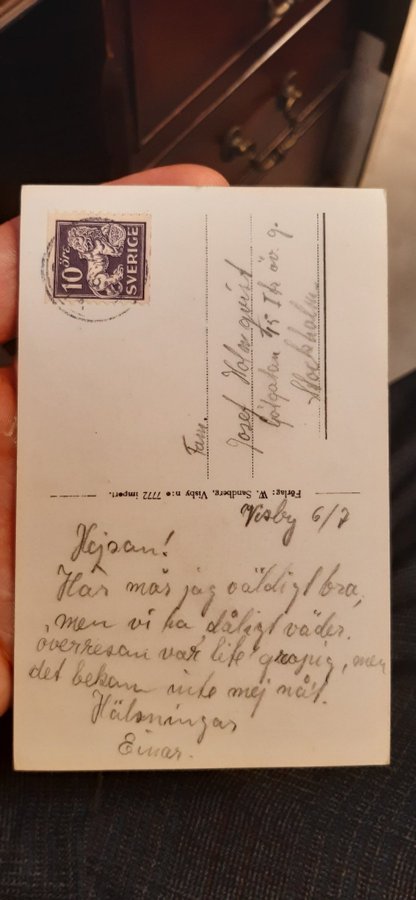 10 öre
SVERIGE
Fam.
Josef Holmqvist
Götgatan 45 Th öv. g.
Stockholm.
Förlag: W. Sandberg, Visby n:o 7772 import.
Visby 6/7
Hejsan!
Här mår jag väldigt bra,
men vi ha, dåligt väder.
överresan var lite grapig, men
det bekom inte mej nåt.
Hälsningar
Einar.